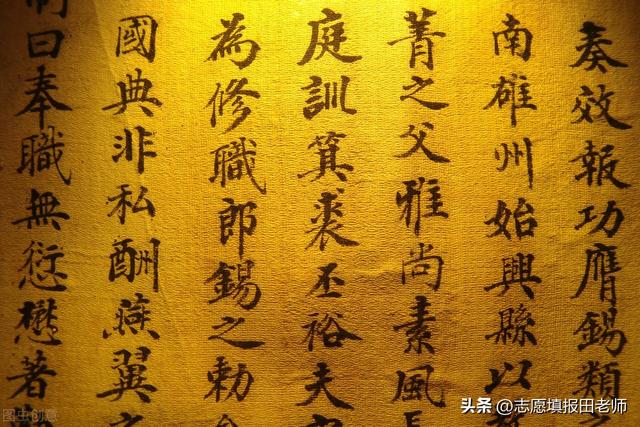 奏效報功膺錫類之
南雄州始興縣以
菁之父雅尚素風長
庭訓箕裘丕裕夫
為修職郎錫之勅命
國典非私酬燕翼之
制曰奉職無愆懋著
图虫创意
头条 @志愿填报田老师